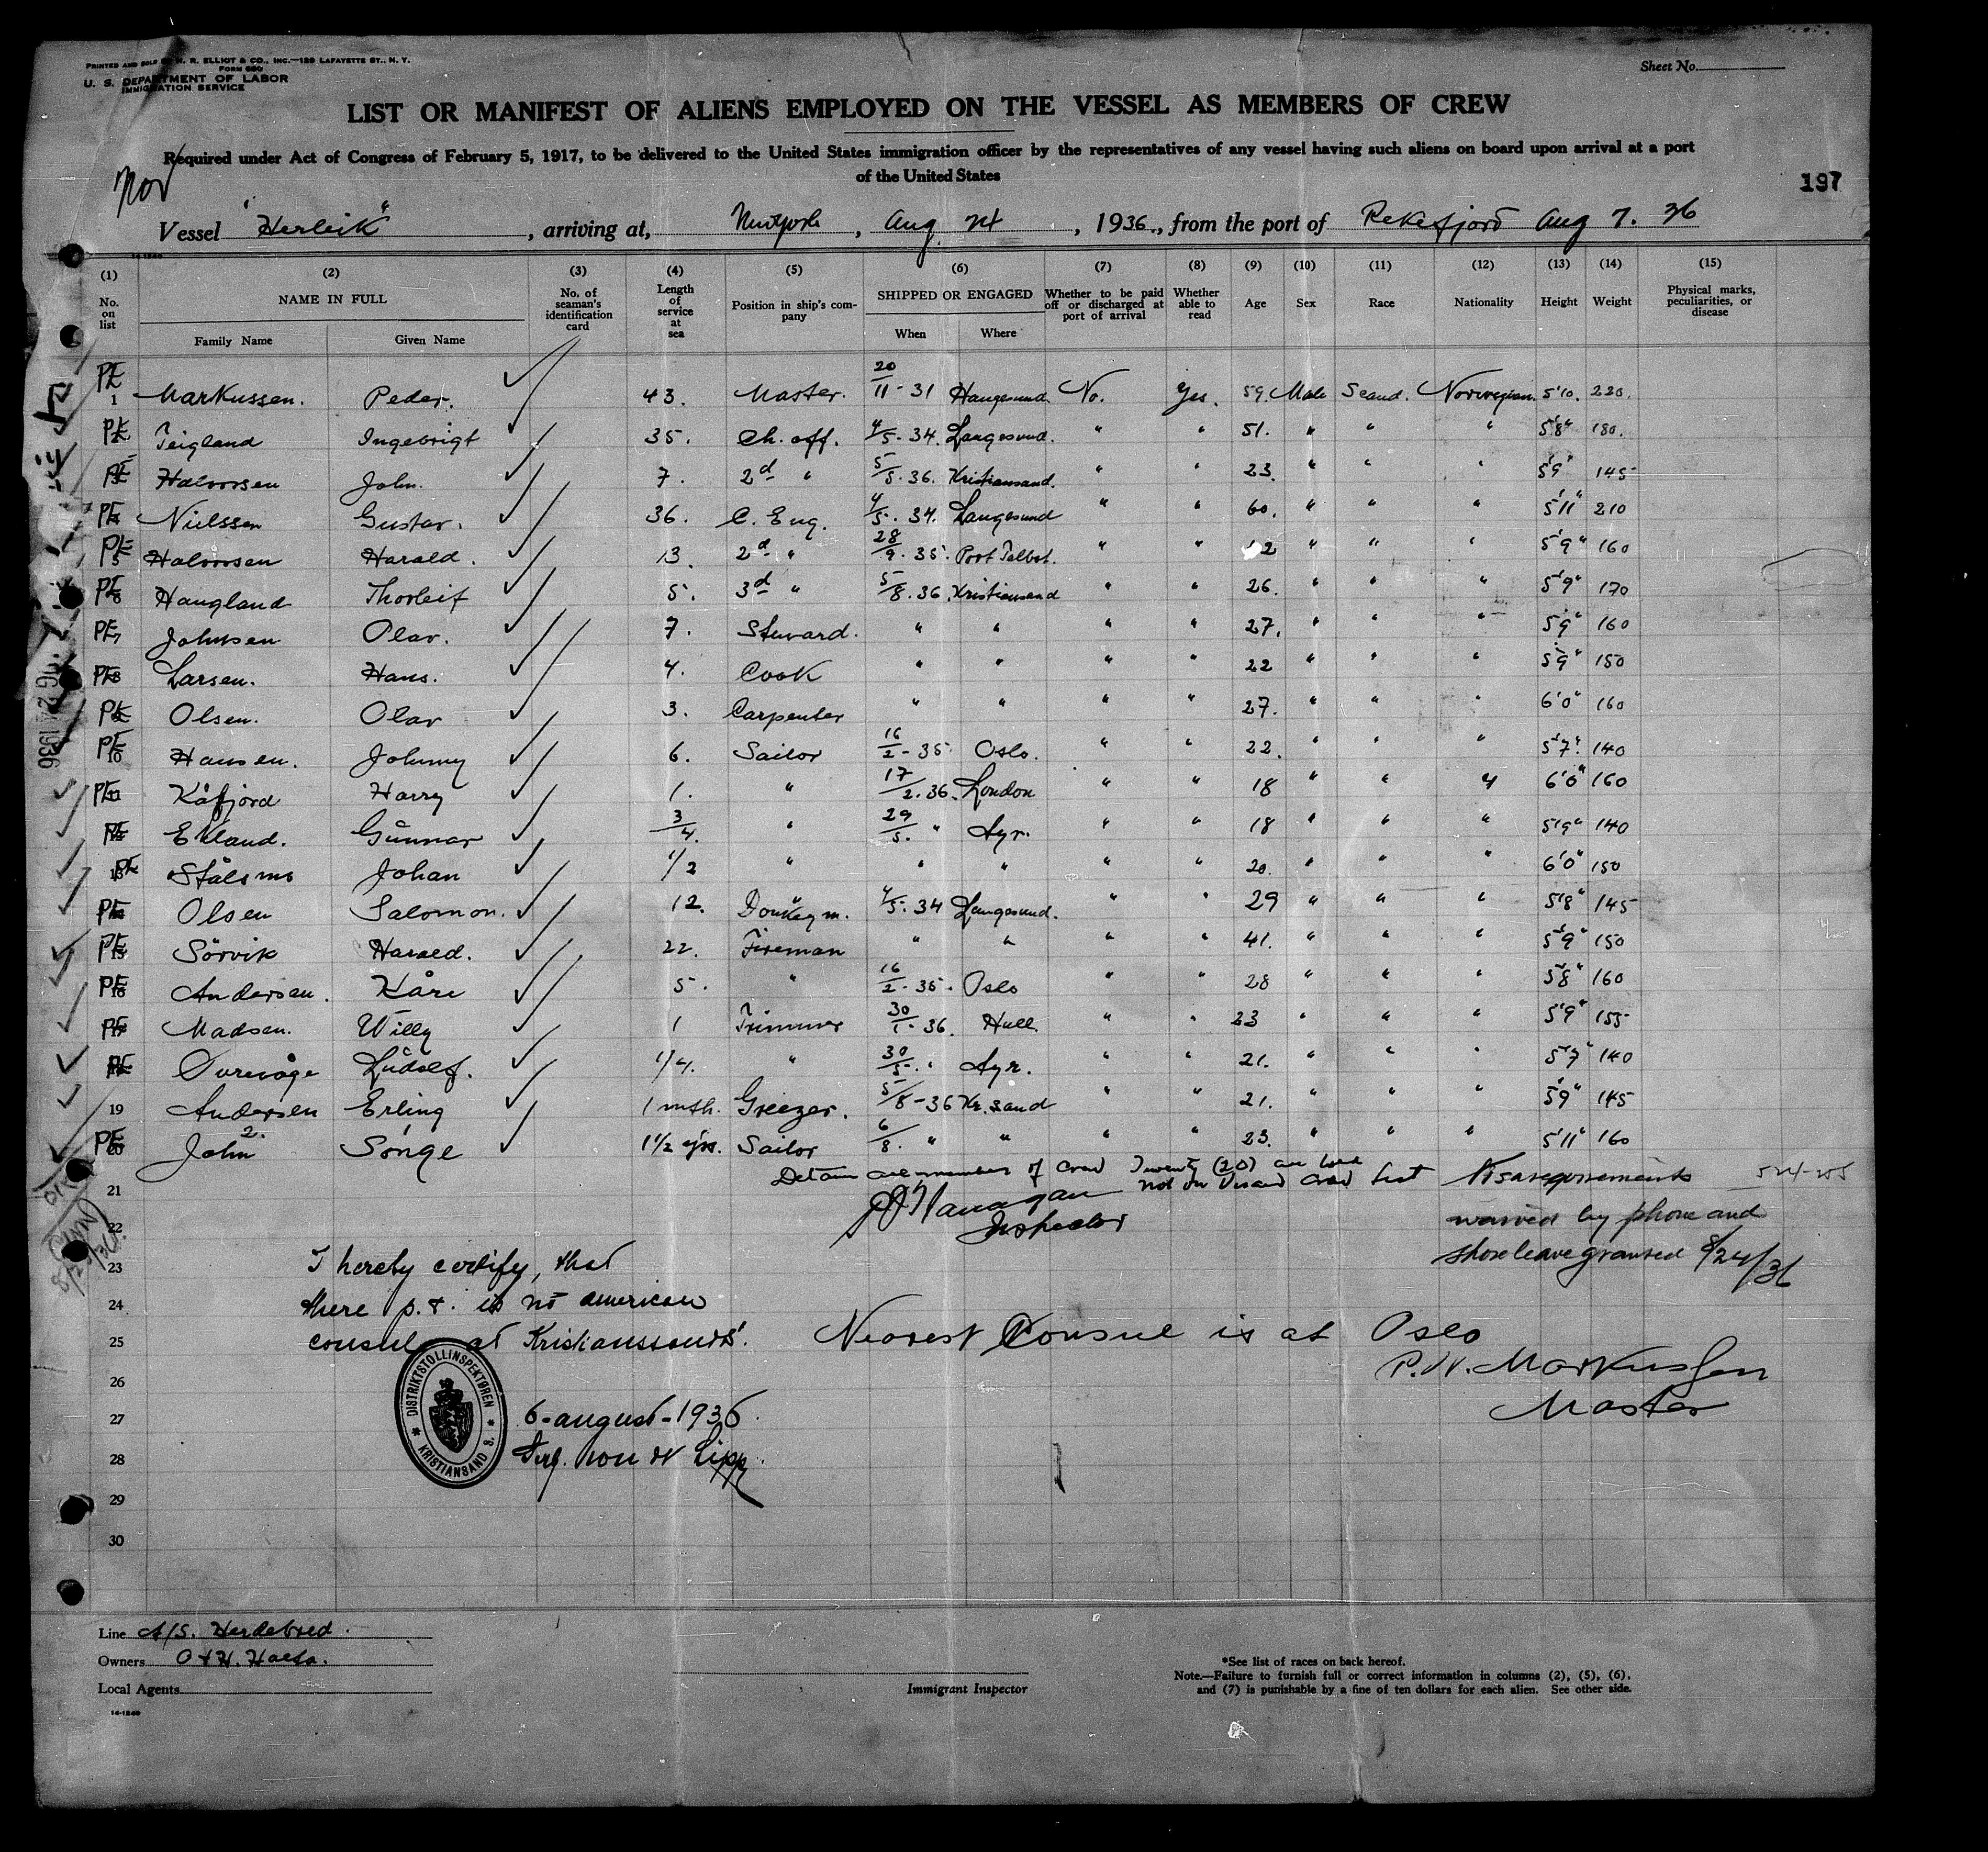 PRINTED AND SOLD BY H. R. ELLIOT & CO., INC.—129 LAFAYETTE ST., N. Y.
FORM 680
U. S. DEPARTMENT OF LABOR
IMMIGRATION SERVICE
Sheet No.
LIST OR MANIFEST OF ALIENS EMPLOYED ON THE VESSEL AS MEMBERS OF CREW
Required under Act of Congress of February 5, 1917, to be delivered to the United States immigration officer by the representatives of any vessel having such aliens on board upon arrival at a port
of the United States
Nor
197
Vessel "Herleik", arriving at, New York, Aug 24, 1936, from the port of Rekefjord Aug 7. 36
14-1240
(1) (2) (3) (4) (5) (6) (7) (8) (9) (10) (11) (12) (13) (14) (15)
No. on list NAME IN FULL Family Name Given Name No. of seaman's identification card Length of service at sea Position in ship's company SHIPPED OR ENGAGED When Where Whether to be paid off or discharged at port of arrival Whether able to read Age Sex Race Nationality Height Weight Physical marks, peculiarities, or disease
1 Markussen. Peder. 43. Master. 20/11-31 Haugesund No. Yes. 59. Male Scand. Norwegian. 5'10. 220.
2 Teigland Ingebrigt 35. Ch. off. 4/5-34. Langesund. " " 51. " " " 5'8" 180.
3 Halvorsen John. 7. 2d " 5/8.36. Kristiansand. " " 23. " " " 5'9" 145
4 Nielssen Gustav. 36. C. Eng. 4/5.34. Langesund " " 60. " " " 5'11" 210
5 Halvorsen Harald. 13. 2d " 28/9.35. Port Talbot. " " " " " 5'9" 160
6 Haugland Thorleif 5. 3d " 5/8.36. Kristiansand " " 26. " " " 5'9" 170
7 Johnsen Olav. 7. Steward. " " " " 27. " " " 5'9" 160
8 Larsen. Hans. 4. Cook " " " " 22 " " " 5'9" 150
9 Olsen. Olav 3. Carpenter " " " " 27. " " " 6'0" 160
10 Hansen. Johnny 6. Sailor 16/2-35. Oslo. " " 22. " " " 5'7". 140
11 Kåfjord Harry 1. " 17/2.36. London " " 18 " " " 6'0" 160
12 Ekland. Gunnar 3/4. " 29/5. " Ayr. " " 18 " " " 5'9" 140
13 Johan 1/2 " " " " " 20. " " " 6'0" 150
14 Olsen Salomon. 12. Donkeym. 4/5.34 Langesund. " " 29 " " " 5'8" 145
15 Sörvik Harald. 22. Fireman " " " " 41. " " " 5'9" 150
16 Andersen. Kåre 5. " 16/2.35. Oslo " " 28 " " " 5'8" 160
17 Madsen. Willy 1 Trimmer 30/1-36. Hull " " 23 " " " 5'9" 155
18 Ovrevåge Ludolf. 1/4. " 30/5. " Ayr. " " 21. " " " 5'7" 140
19 Andersen Erling 1 mth. Greezer. 5/8-36 Kr. sand " " 21. " " " 5'9" 145
20 John 2. Songe 1 1/2 yrs. Sailor 6/8. " " " " 23. " " " 5'11" 160
Detain all members of crew Twenty (20) as
not on visaed crew list
21
Inspector
Visa requirements
22
waived by phone and
shore leave granted 8/24/36
23
I hereby certify, that
24
there p.t. is no american
25
consul at Kristianssand S.
Nearest Consul is at Oslo
P. N. Markussen
Master
26
27
28
29
30
DISTRIKTSTOLLINSPEKTØREN
KRISTIANSAND S.
6-august-1936.
AUG 24 1936
Line A/S. Herdebred
Owners O & H. Holta.
Local Agents
14-1240
Immigrant Inspector
*See list of races on back hereof.
Note.—Failure to furnish full or correct information in columns (2), (5), (6),
and (7) is punishable by a fine of ten dollars for each alien. See other side.